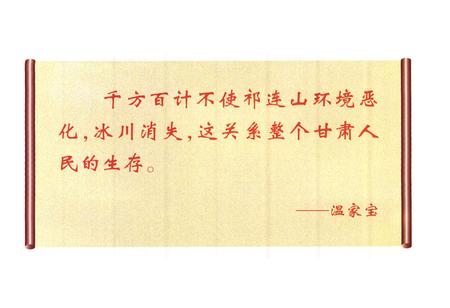 千方百计不使祁连山环境恶
化,冰川消失,这关系整个甘肃人
民的生存。
——温家宝